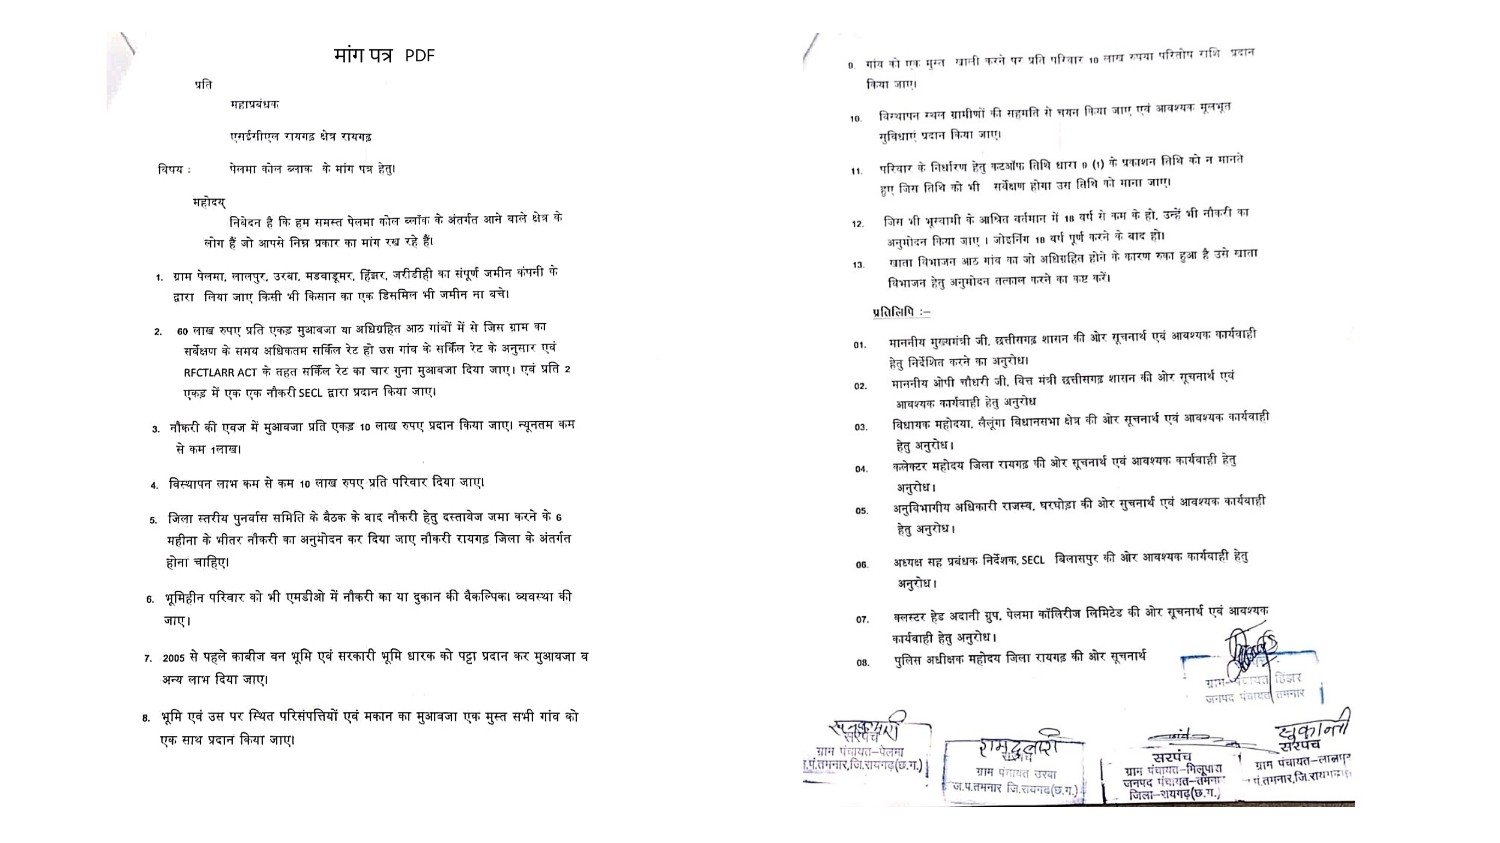 मांग पत्र PDF
प्रति
महाप्रबंधक
एसईसीएल रायगढ़ क्षेत्र रायगढ़
विषय : पेलमा कोल ब्लाक के मांग पत्र हेतु।
महोदय्
निवेदन है कि हम समस्त पेलमा कोल ब्लॉक के अंतर्गत आने वाले क्षेत्र के
लोग हैं जो आपसे निम्न प्रकार का मांग रख रहे हैं।
1. ग्राम पेलमा, लालपुर, उरबा, मडवाडूमर, हिंझर, जरीडीही का संपूर्ण जमीन कंपनी के
द्वारा लिया जाए किसी भी किसान का एक डिसमिल भी जमीन ना बचे।
2. 60 लाख रुपए प्रति एकड़ मुआवजा या अधिग्रहित आठ गांवों में से जिस ग्राम का
सर्वेक्षण के समय अधिकतम सर्किल रेट हो उस गांव के सर्किल रेट के अनुसार एवं
RFCTLARR ACT के तहत सर्किल रेट का चार गुना मुआवजा दिया जाए। एवं प्रति 2
एकड़ में एक एक नौकरी SECL द्वारा प्रदान किया जाए।
3. नौकरी की एवज में मुआवजा प्रति एकड़ 10 लाख रुपए प्रदान किया जाए। न्यूनतम कम
से कम 1लाख।
4. विस्थापन लाभ कम से कम 10 लाख रुपए प्रति परिवार दिया जाए।
5. जिला स्तरीय पुनर्वास समिति के बैठक के बाद नौकरी हेतु दस्तावेज जमा करने के 6
महीना के भीतर नौकरी का अनुमोदन कर दिया जाए नौकरी रायगढ़ जिला के अंतर्गत
होना चाहिए।
6. भूमिहीन परिवार को भी एमडीओ में नौकरी का या दुकान की वैकल्पिक। व्यवस्था की
जाए।
7. 2005 से पहले काबीज वन भूमि एवं सरकारी भूमि धारक को पट्टा प्रदान कर मुआवजा व
अन्य लाभ दिया जाए।
8. भूमि एवं उस पर स्थित परिसंपत्तियों एवं मकान का मुआवजा एक मुस्त सभी गांव को
एक साथ प्रदान किया जाए।
9. गांव को एक मुस्त खाली करने पर प्रति परिवार 10 लाख रुपया परितोष राशि प्रदान
किया जाए।
10. विस्थापन स्थल ग्रामीणों की सहमति से चयन किया जाए एवं आवश्यक मूलभूत
सुविधाएं प्रदान किया जाए।
11. परिवार के निर्धारण हेतु कटऑफ तिथि धारा 9 (1) के प्रकाशन तिथि को न मानते
हुए जिस तिथि को भी सर्वेक्षण होगा उस तिथि को माना जाए।
12. जिस भी भूस्वामी के आश्रित वर्तमान में 18 वर्ष से कम के हो, उन्हें भी नौकरी का
अनुमोदन किया जाए । जोइनिंग 18 वर्ष पूर्ण करने के बाद हो।
13. खाता विभाजन आठ गांव का जो अधिग्रहित होने के कारण रुका हुआ है उसे खाता
विभाजन हेतु अनुमोदन तत्काल करने का कष्ट करें।
प्रतिलिपि :–
01. माननीय मुख्यमंत्री जी, छत्तीसगढ़ शासन की ओर सूचनार्थ एवं आवश्यक कार्यवाही
हेतु निर्देशित करने का अनुरोध।
02. माननीय ओपी चौधरी जी, वित्त मंत्री छत्तीसगढ़ शासन की ओर सूचनार्थ एवं
आवश्यक कार्यवाही हेतु अनुरोध
03. विधायक महोदया, लैलूंगा विधानसभा क्षेत्र की ओर सूचनार्थ एवं आवश्यक कार्यवाही
हेतु अनुरोध।
04. कलेक्टर महोदय जिला रायगढ़ की ओर सूचनार्थ एवं आवश्यक कार्यवाही हेतु
अनुरोध।
05. अनुविभागीय अधिकारी राजस्व, घरघोड़ा की ओर सुचनार्थ एवं आवश्यक कार्यवाही
हेतु अनुरोध।
06. अध्यक्ष सह प्रबंधक निर्देशक, SECL बिलासपुर की ओर आवश्यक कार्यवाही हेतु
अनुरोध।
07. क्लस्टर हेड अदानी ग्रुप, पेलमा कॉलिरीज लिमिटेड की ओर सूचनार्थ एवं आवश्यक
कार्यवाही हेतु अनुरोध।
08. पुलिस अधीक्षक महोदय जिला रायगढ़ की ओर सूचनार्थ
ग्राम-पंचायत हिंझर
जनपद पंचायत तमनार
सरपंच
ग्राम पंचायत-पेलमा
तमनार,जि.रायगढ़(छ.ग.)
रामदुलारी
ग्राम पंचायत उरबा
ज.प.तमनार जि.रायगढ़(छ.ग.)
सरपंच
ग्राम पंचायत-मिलूपारा
जनपद पंचायत-तमनार
जिला-रायगढ़(छ.ग.)
सुकान्ती
सरपंच
ग्राम पंचायत-लालपुर